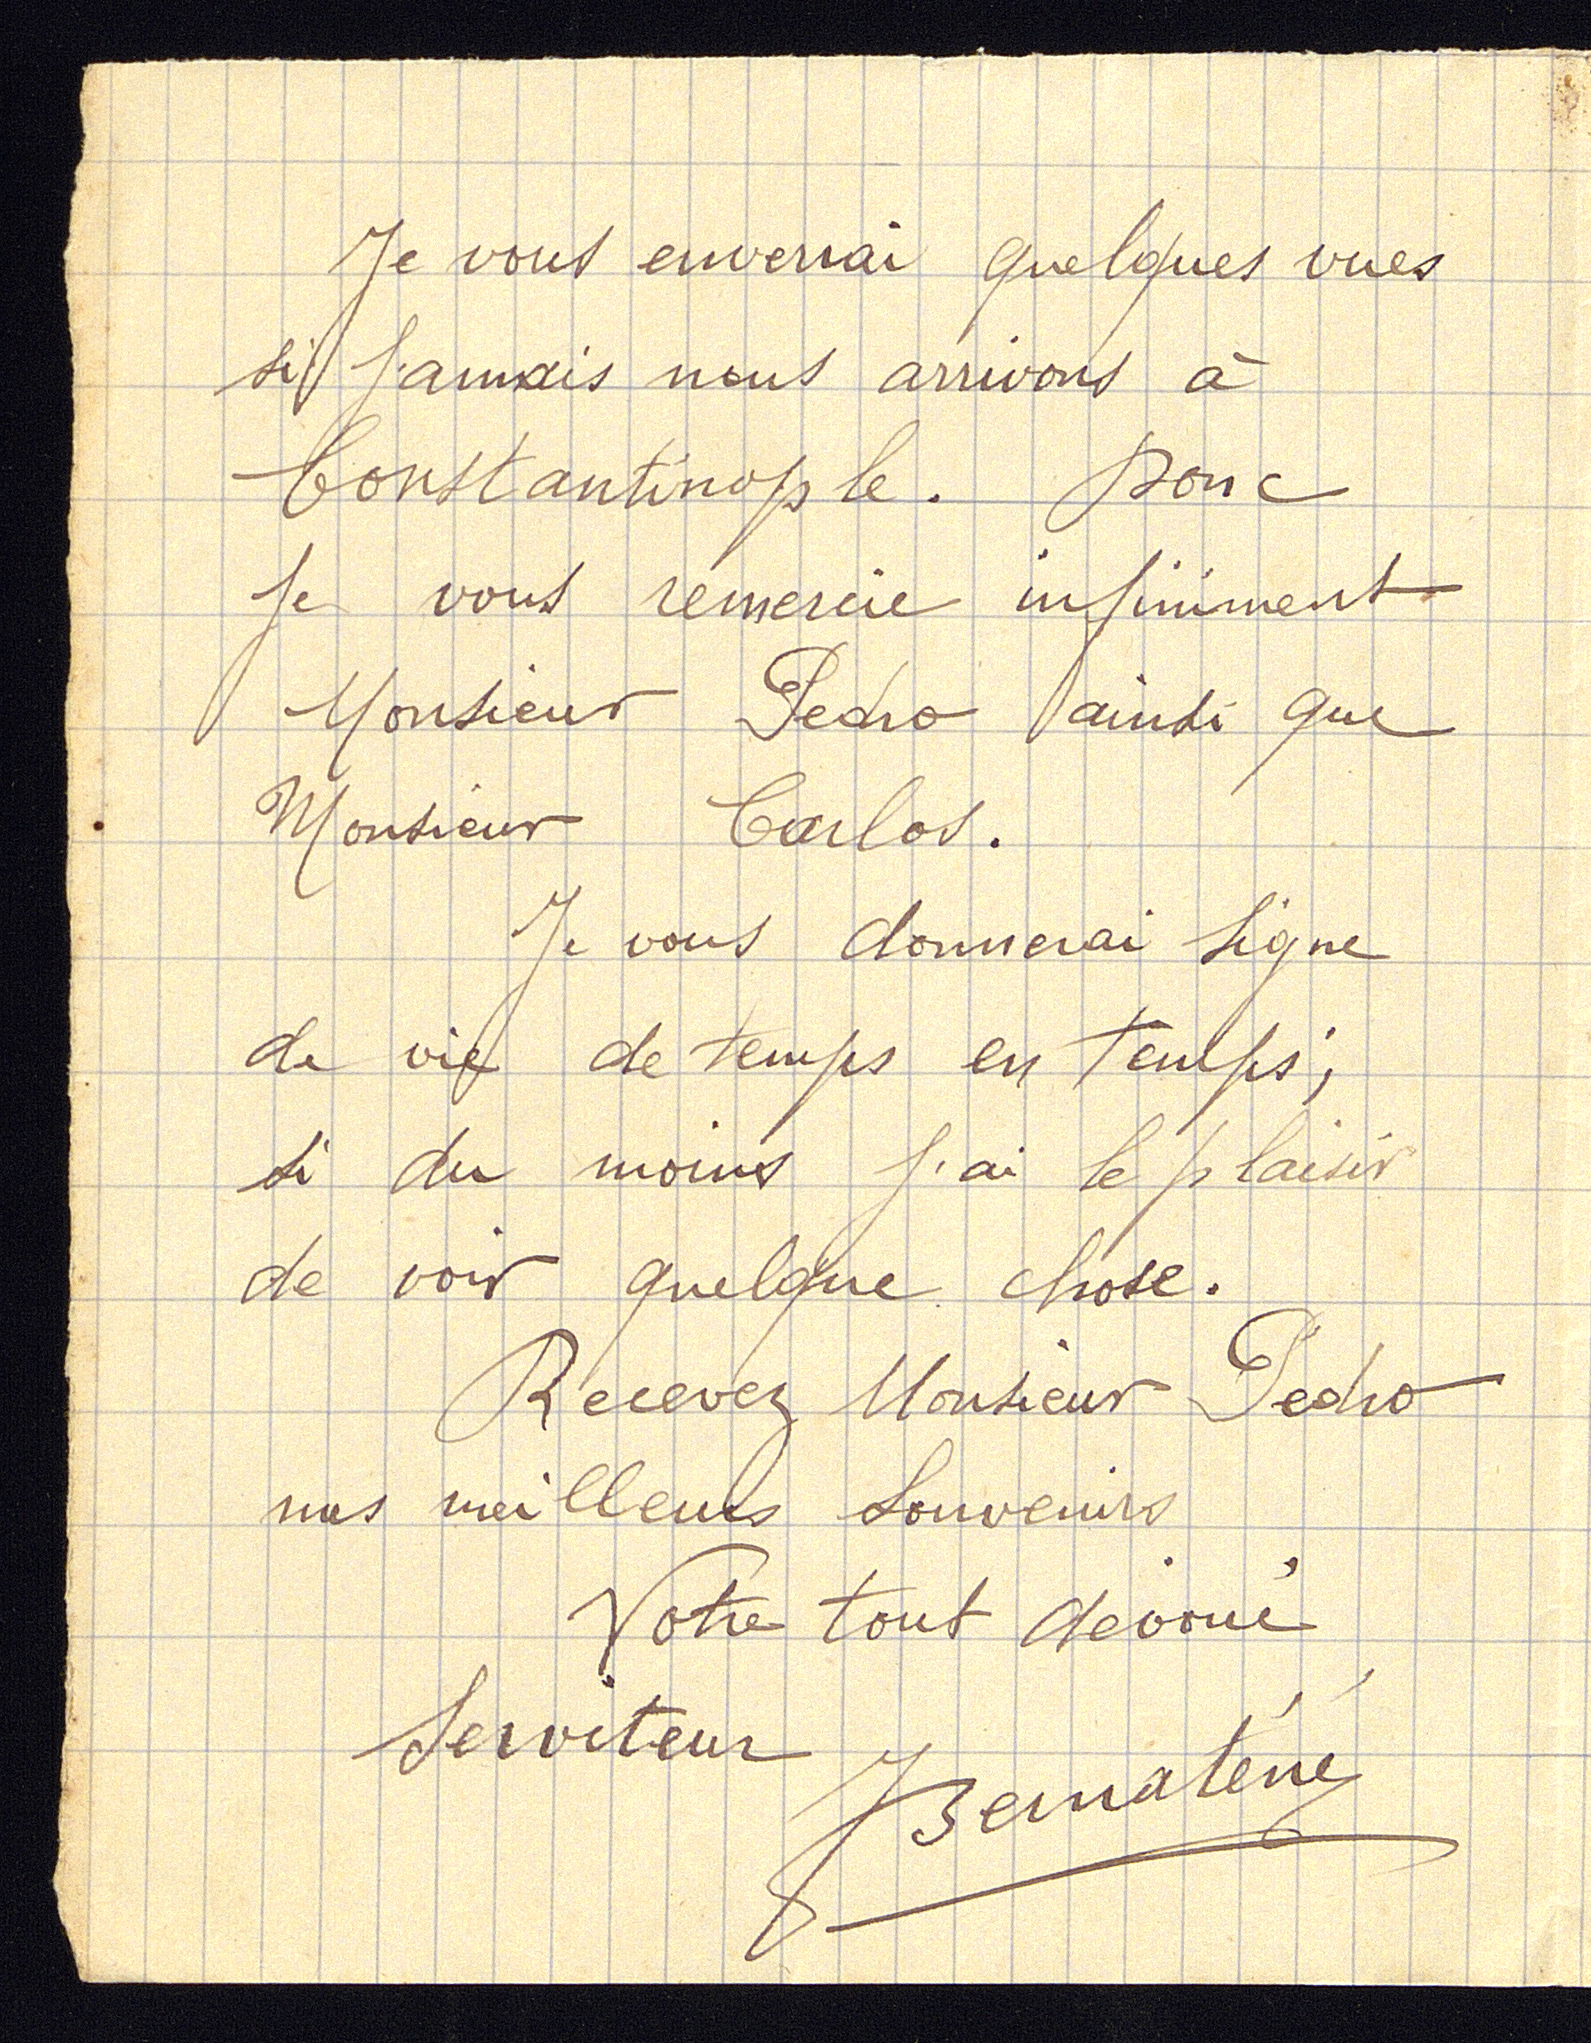 Je vous enverrai quelques vues
si jamais nous arrivons à
Constantinople. Donc
je vous remercie infiniment
Monsieur Pedro ainsi que
Monsieur Carlos.
Je vous donnerai signe
de vie de temps en temps,
si du moins j'ai le plaisir
de voir quelque chose.
Recevez Monsieur Pedro
mes meilleurs souvenirs
Votre tout dévoué
Serviteur
JBernaténé